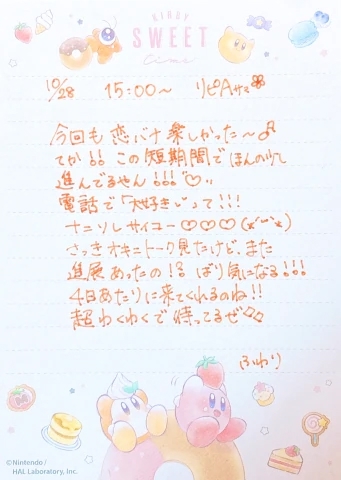 KIRBY
SWEET
time
10/28 15:00〜 リピAサマ
今回も恋バナ楽しかった〜♂
てか!! この短期間でほんの少し
進んでるやん!!!♡
電話で「大好き」って!!
ナニソレサイコー♡♡♡
さっきオキニトーク見たけど、また
進展あったの!? ばり気になる!!!
4日あたりに来てくれるのね!!
超わくわくで待ってるぜ♡♡
ふわり
©Nintendo /
HAL Laboratory, Inc.